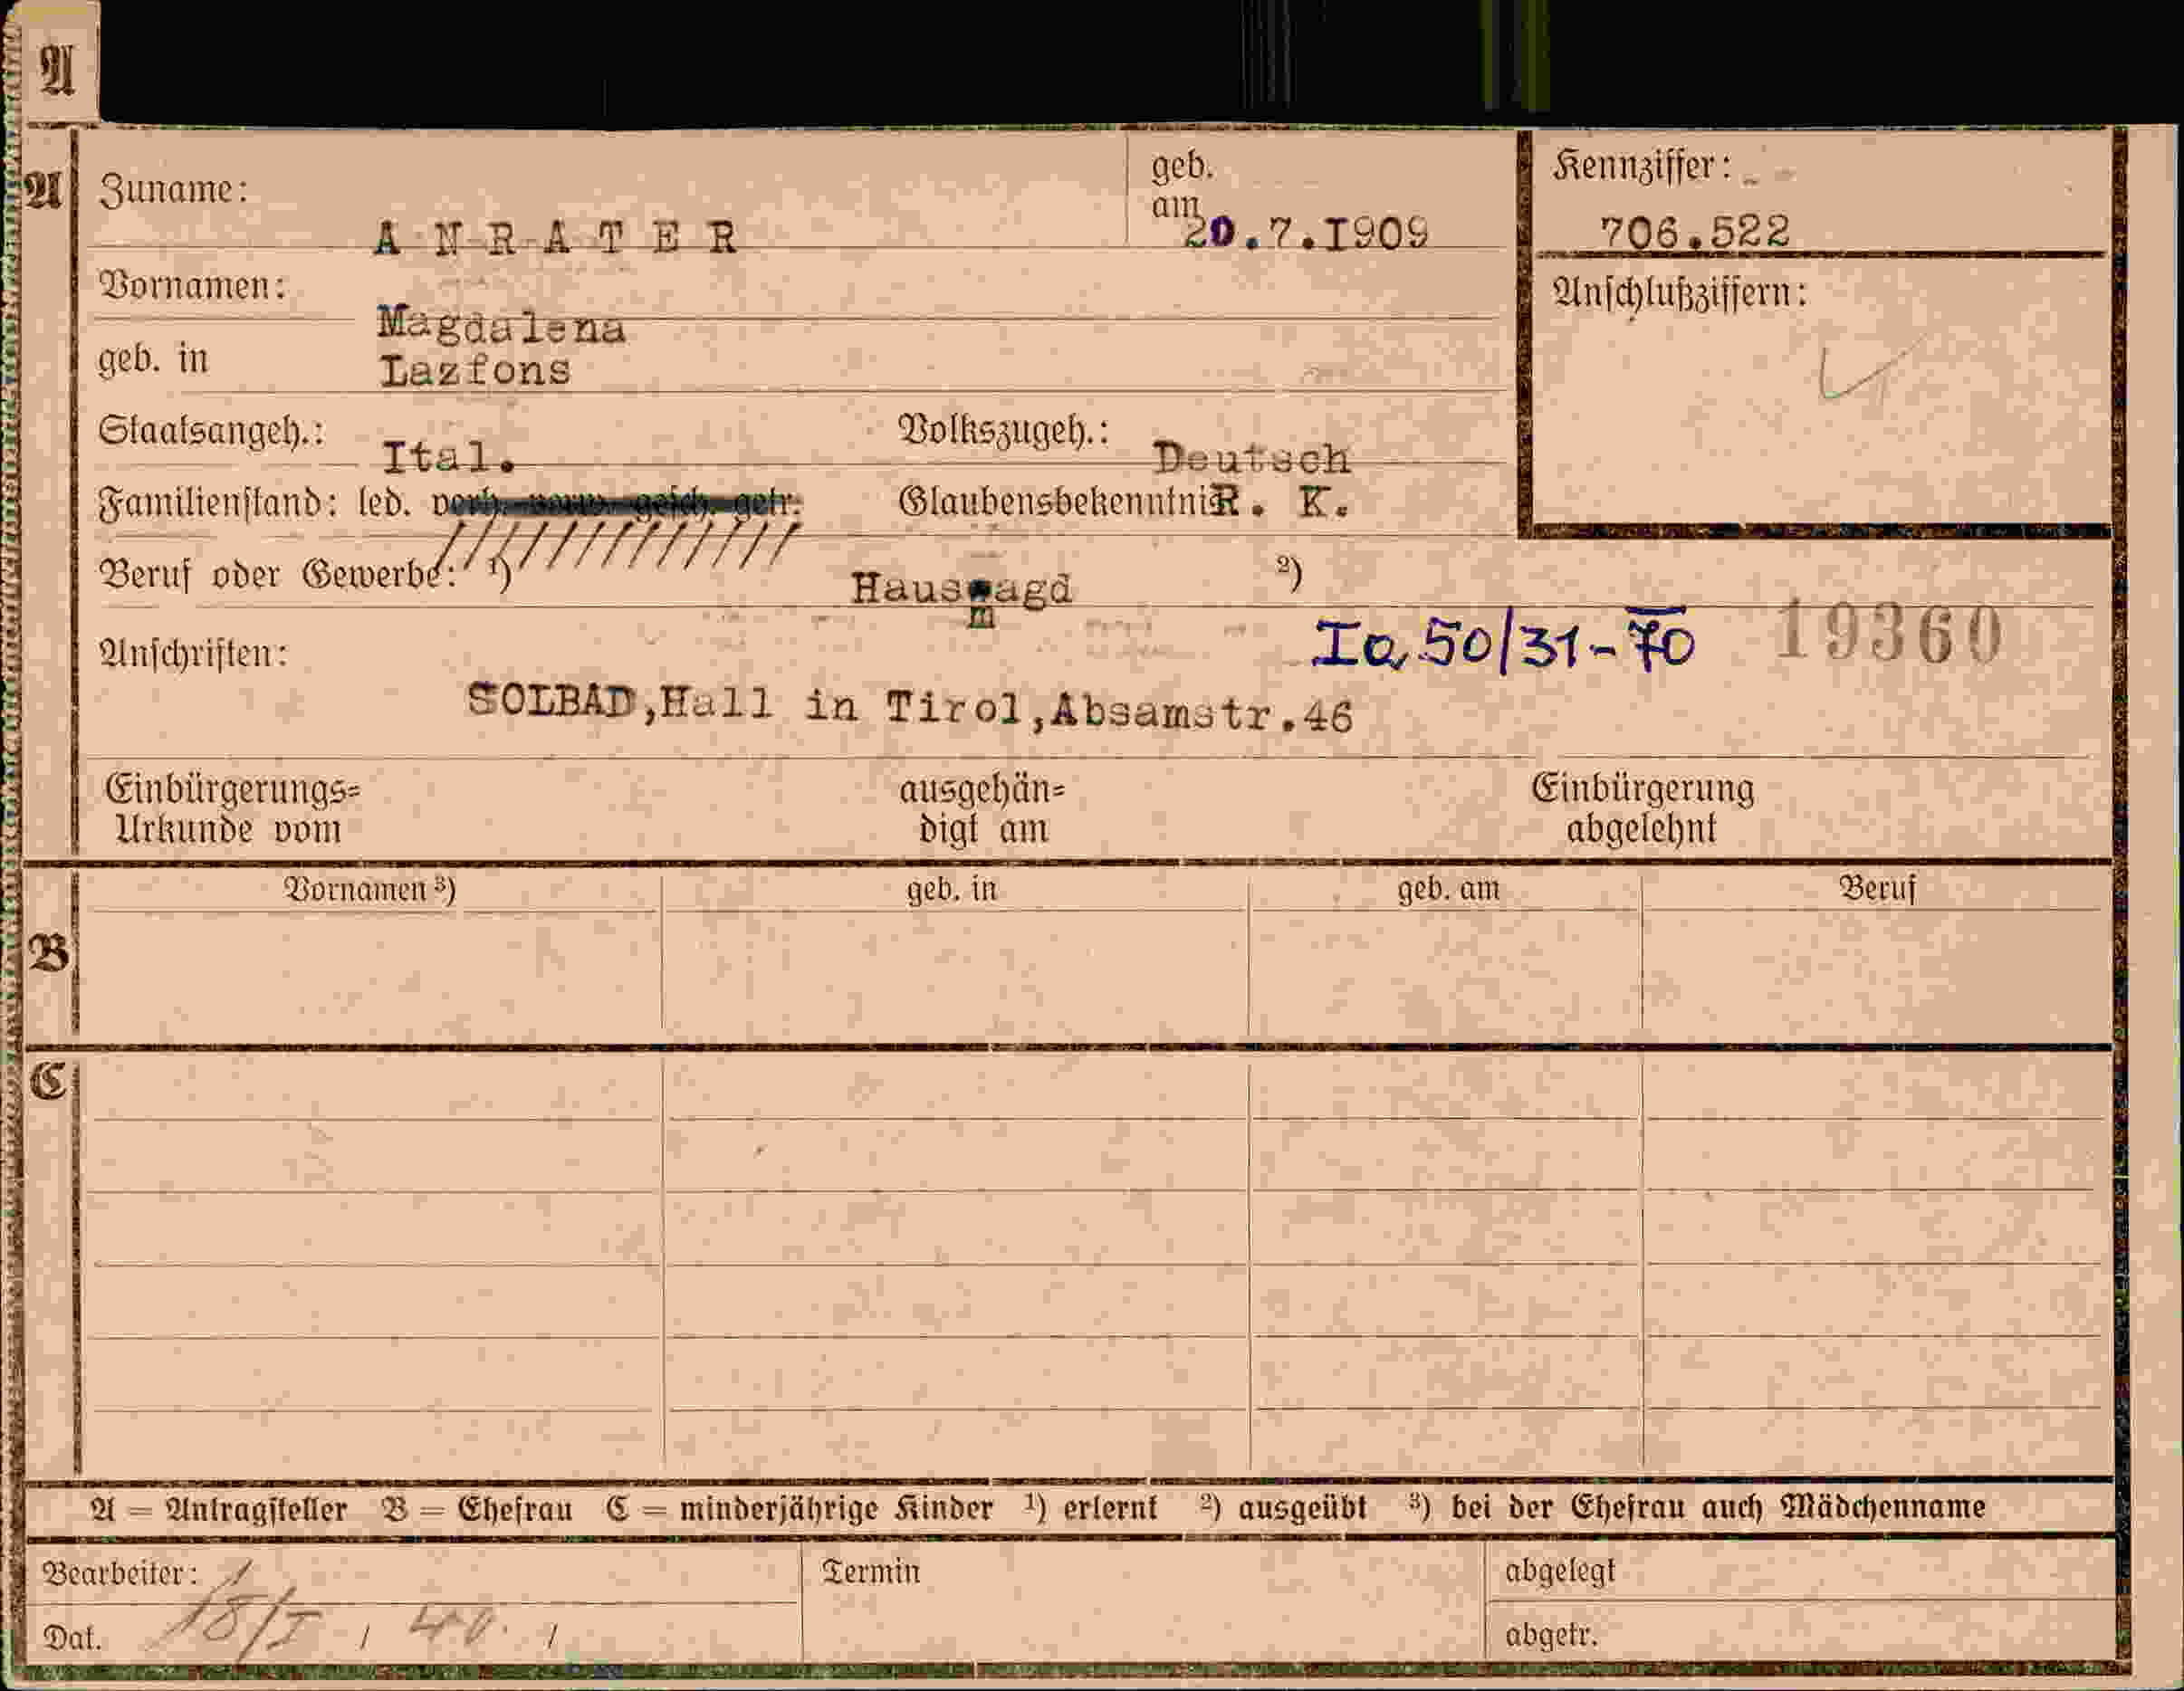 A
A Zuname: A N R A T E R geb. am 20.7.I909 Kennziffer: 706.522
Vornamen: Magdalena Anschlußziffern:
geb. in Lazfons
Staatsangeh.: Ital. Volkszugeh.: Deutsch
Familienstand: led. verh. verw. gesch. getr. Glaubensbekenntnis R. K.
Beruf oder Gewerbe: ¹) Hausmagd ²)
Ia 50/31-70 19360
Anschriften:
SOLBAD,Hall in Tirol,Absamstr.46
Einbürgerungs= ausgehän= Einbürgerung
Urkunde vom digt am abgelehnt
Vornamen ³) geb. in geb. am Beruf
B
C
A = Antragsteller B = Ehefrau C = minderjährige Kinder ¹) erlernt ²) ausgeübt ³) bei der Ehefrau auch Mädchenname
Bearbeiter: Termin abgelegt
Dat. 18/I / 40. / abgetr.